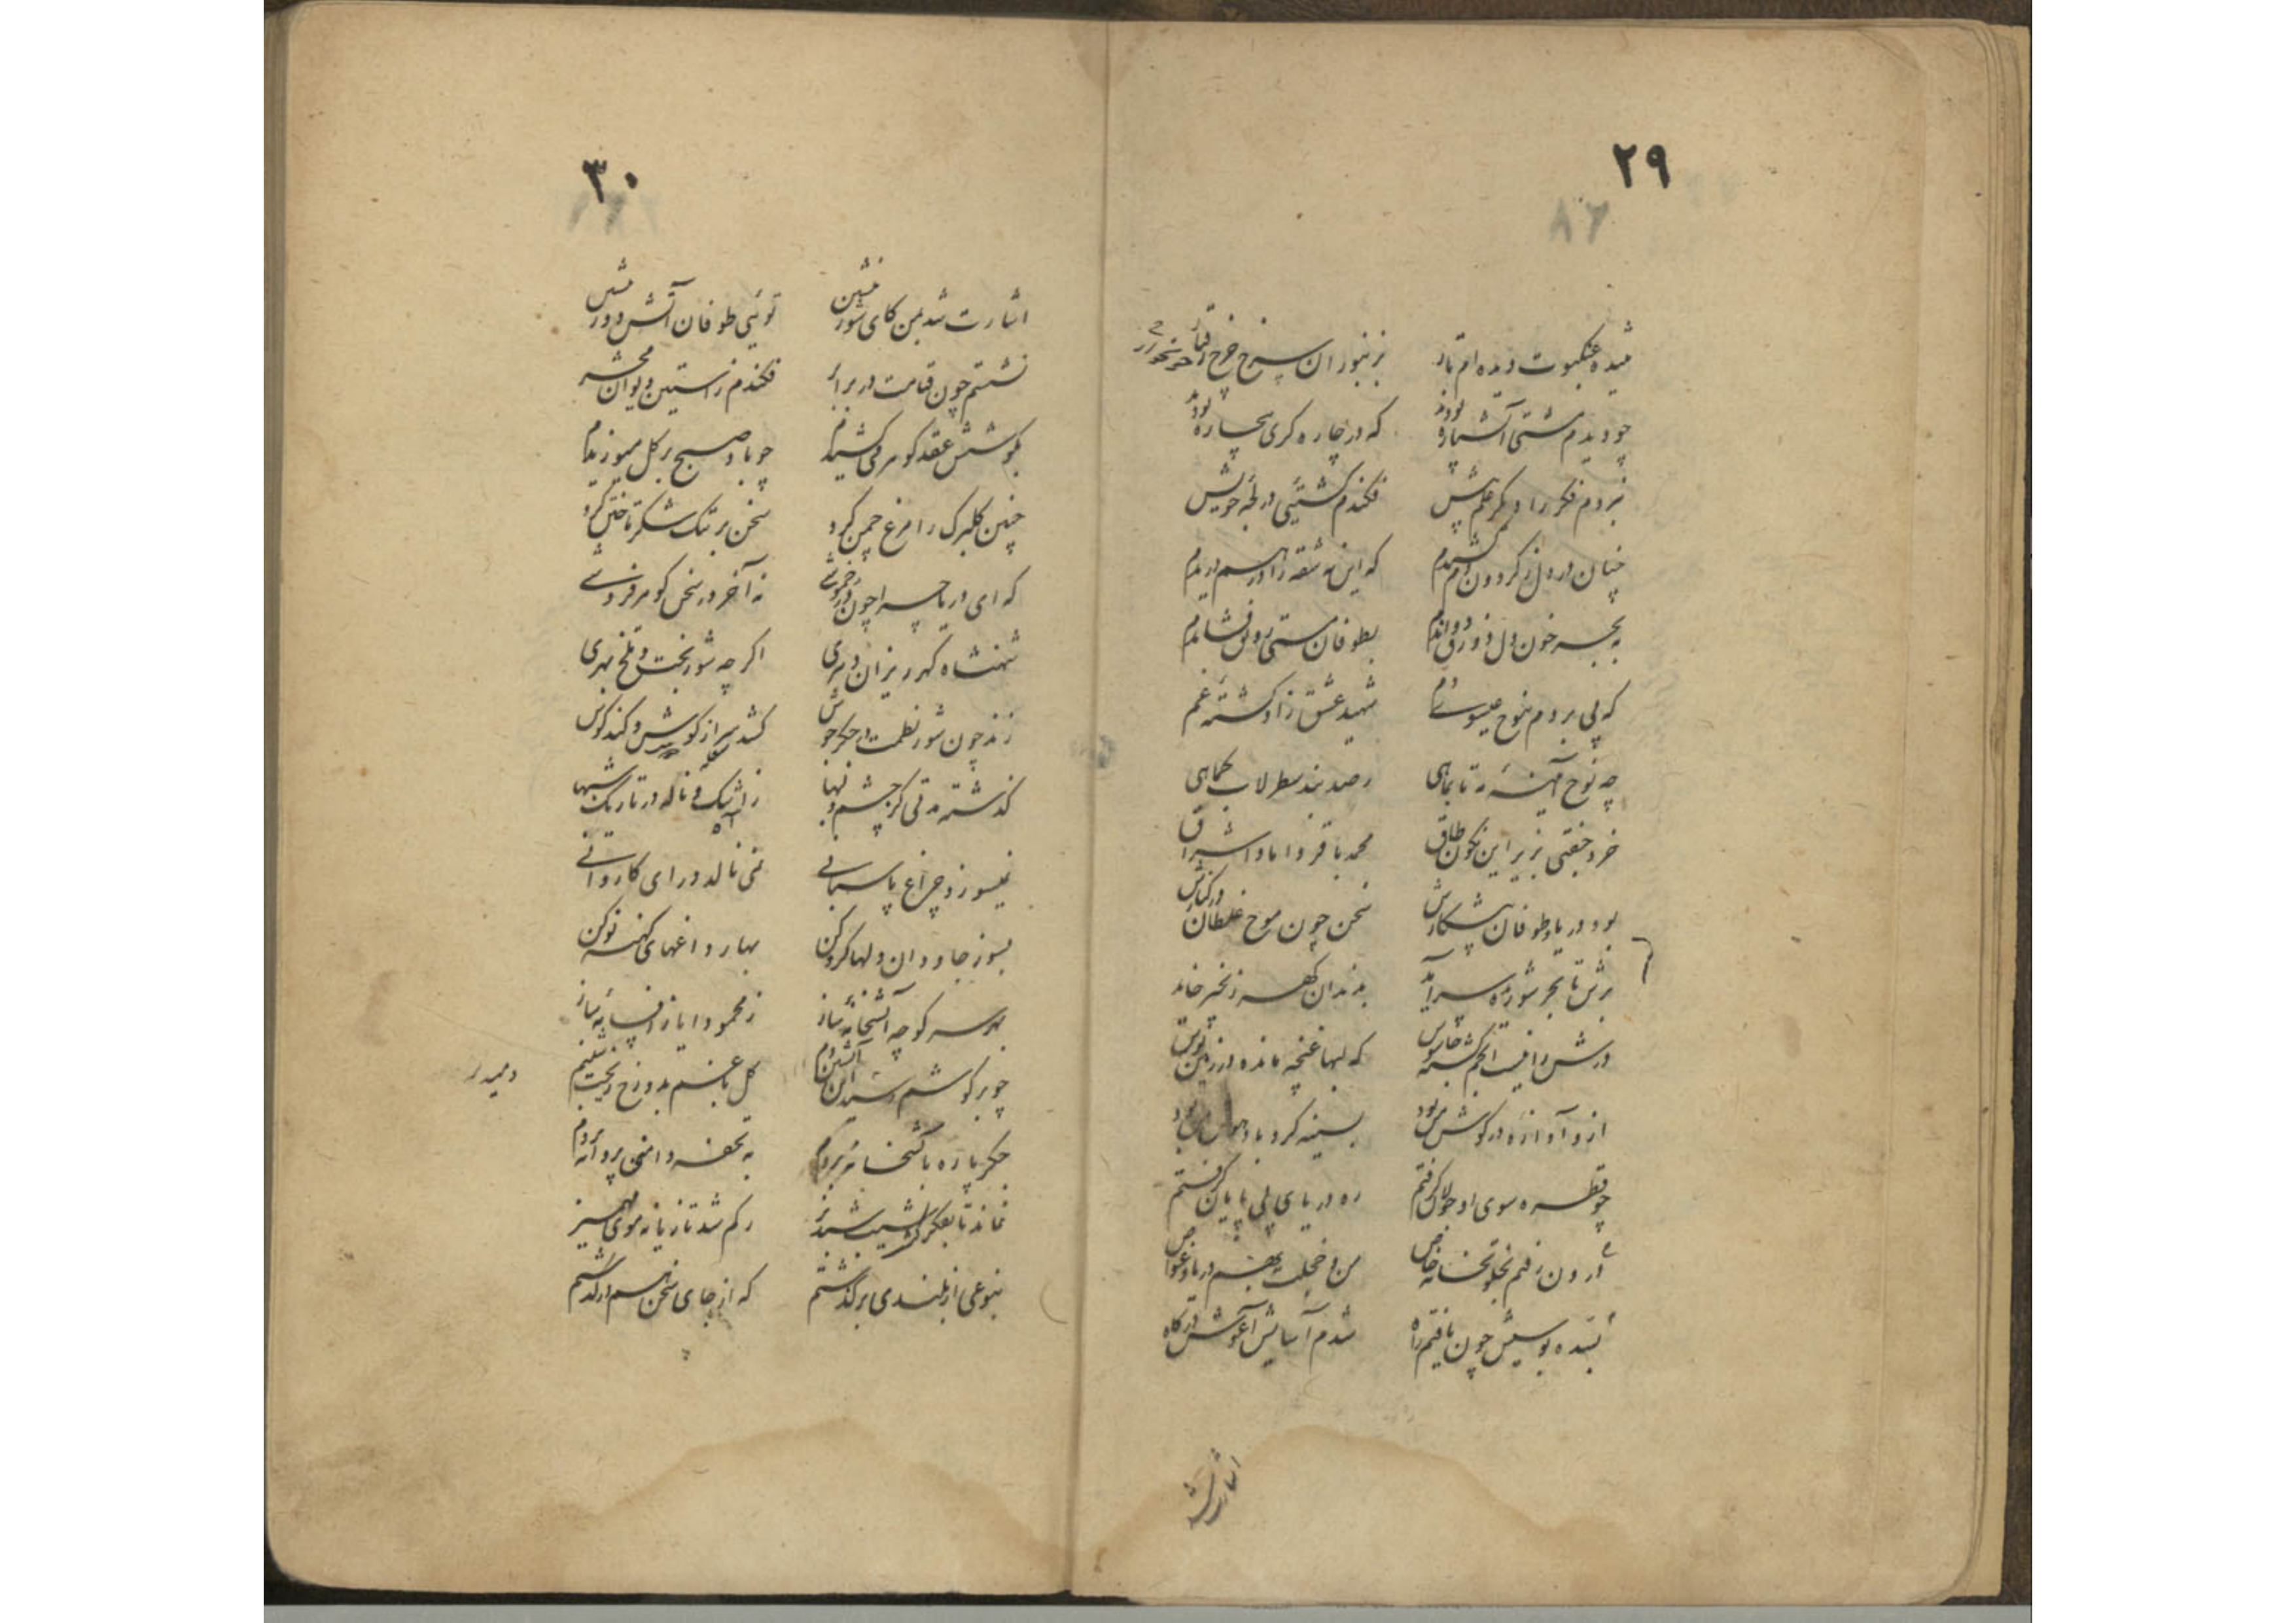 ۲۹
تنیده عنکبوت دیده ام تار ز زنبوران سرخ چرخ
چو دیدم مشتی آتشپاره بودند که در چاره کری بیچاره بودند
نبردم فکر را دیگر علم پیش فکندم کشتئی در لجه خویش
چنان در دل ز کردون دم که این نه شقه را در هم دریدم
به بحر خون دل زورق دواندم بطوفان مستی رونق فشاندم
که پی بردم بنوح عیسوی دم شهید عشق زاد کشته غم
چه نوح آئینه مه تا بماهی رصد بند سطرلاب کماهی
خرد جفتی بزیر این نکون طاق محمد باقر داماد اشراق
بود دریا و طوفان پیشکارش سخن چون موج غلطان در کنارش
برش تا بحر شوراه سر آمد بدندان کهر زنجیر خاید
درش را نیست انجم که لبها غنچه مانده در زمین بوس
ازو آوازه در کوش من بود بسینه کرد باد
چو قطره سوی او جولان کرفتم ره دریای بی پایان کرفتم
درون رفتم بخلوتخانه خاص من و خجلت بهم دریا و غواص
بسده بوسیش چون یافتم راه شدم آسایش آغوش درکاه
اشارت شد
۳۰
اشارت شد بمن کای شور منشین توئی طوفان آتش دور منشین
نشستم چون قیامت در برابر فکندم ز آستین دیوان محشر
بکوشش عقد کوهر میکشیدم چو باد صبح بر کل میوزیدم
چنین کلبرک را مرغ چمن کرد سخن بر تنک شکر تاختن کرد
که ای دریا چرا چون در خموشی نه آخر در سخن کوهر فروشی
شهنشاه کهر ریزان دهری اکر چه شور بخت و تلخ بهری
زند چون شور نظمت در جکر جوش کشد سر از کوش و کند کوش
کذشته مدتی کز چشم و لبها ز اشک و ناله در تاریک شبها
نمیسوزد چراغ پاسبانی نمی نالد درای کاروانی
بسوز جاودان دلها کرو کن بهار داغهای کهنه نو کن
بهر سر کوچه آتشخانه ساز ز محمود و ایاز افسانه ساز
چو بر کوشم رسید این آتشین دم کل باغم بدوزخ ریخت شبنم
جکر پاره باتشخانه بردم به تحفه دامنی پروانه بردم
نماند تا بفکر شبدیز رکم شد تازیانه موی مهمیز
بنوعی از بلندی بر کذشتم که از جای سخن هم در کذشتم